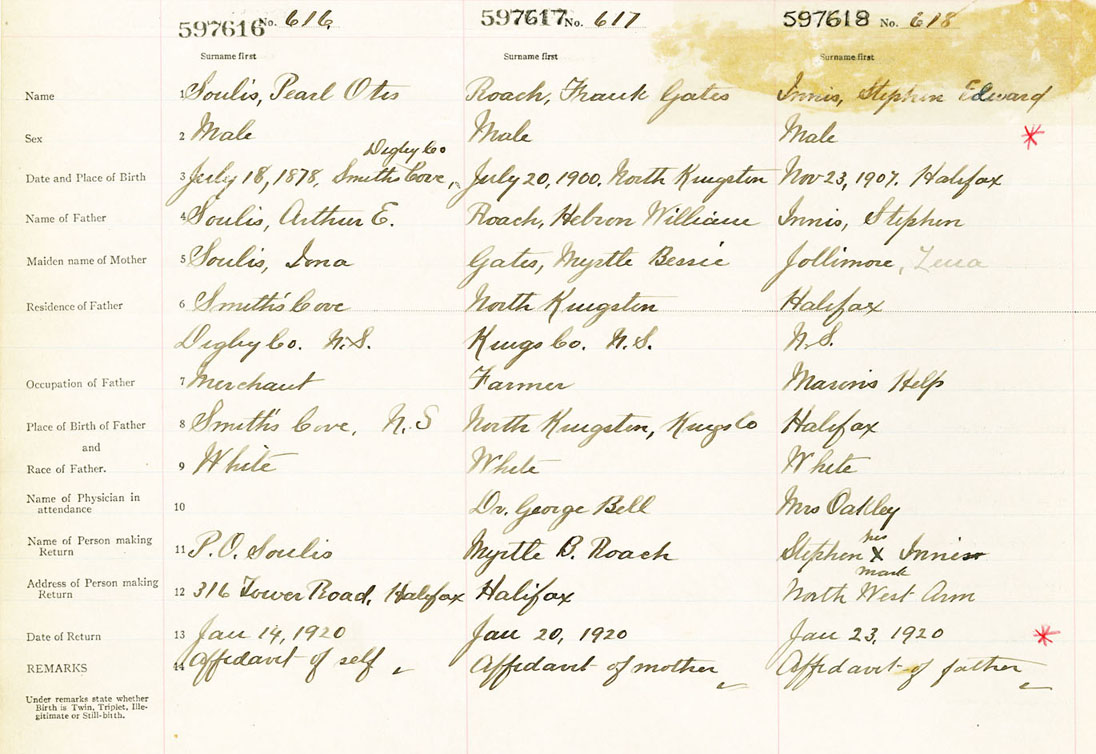 597616 No. 616 597617 No. 617 597618 No. 618
Surname first Surname first Surname first
Name 1 Soulis, Pearl Otis Roach, Frank Gates Innis, Stephen Edward
Sex 2 Male Male Male *
Digby Co
Date and Place of Birth 3 July 18, 1878, Smith's Cove, July 20, 1900. North Kingston Nov 23, 1907. Halifax
Name of Father 4 Soulis, Arthur E. Roach, Hebron William Innis, Stephen
Maiden name of Mother 5 Soulis, Iona Gates, Myrtle Bessie Jollimore, Lena
Residence of Father 6 Smith's Cove North Kingston Halifax
Digby Co. N.S. Kings Co. N.S. N.S.
Occupation of Father 7 Merchant Farmer Mason's Help
Place of Birth of Father 8 Smith's Cove, N.S North Kingston, Kings Co Halifax
and
Race of Father. 9 White White White
Name of Physician in
attendance 10 Dr. George Bell Mrs Oakley
his
Name of Person making
Return 11 P.O. Soulis Myrtle B. Roach Stephen X Innis
mark
Address of Person making
Return 12 316 Tower Road, Halifax Halifax North West Arm
Date of Return 13 Jan 14, 1920 Jan 20, 1920 Jan 23, 1920 *
REMARKS 14 Affidavit of self Affidavit of mother Affidavit of father
Under remarks state whether
Birth is Twin, Triplet, Ille-
gitimate or Still-birth.